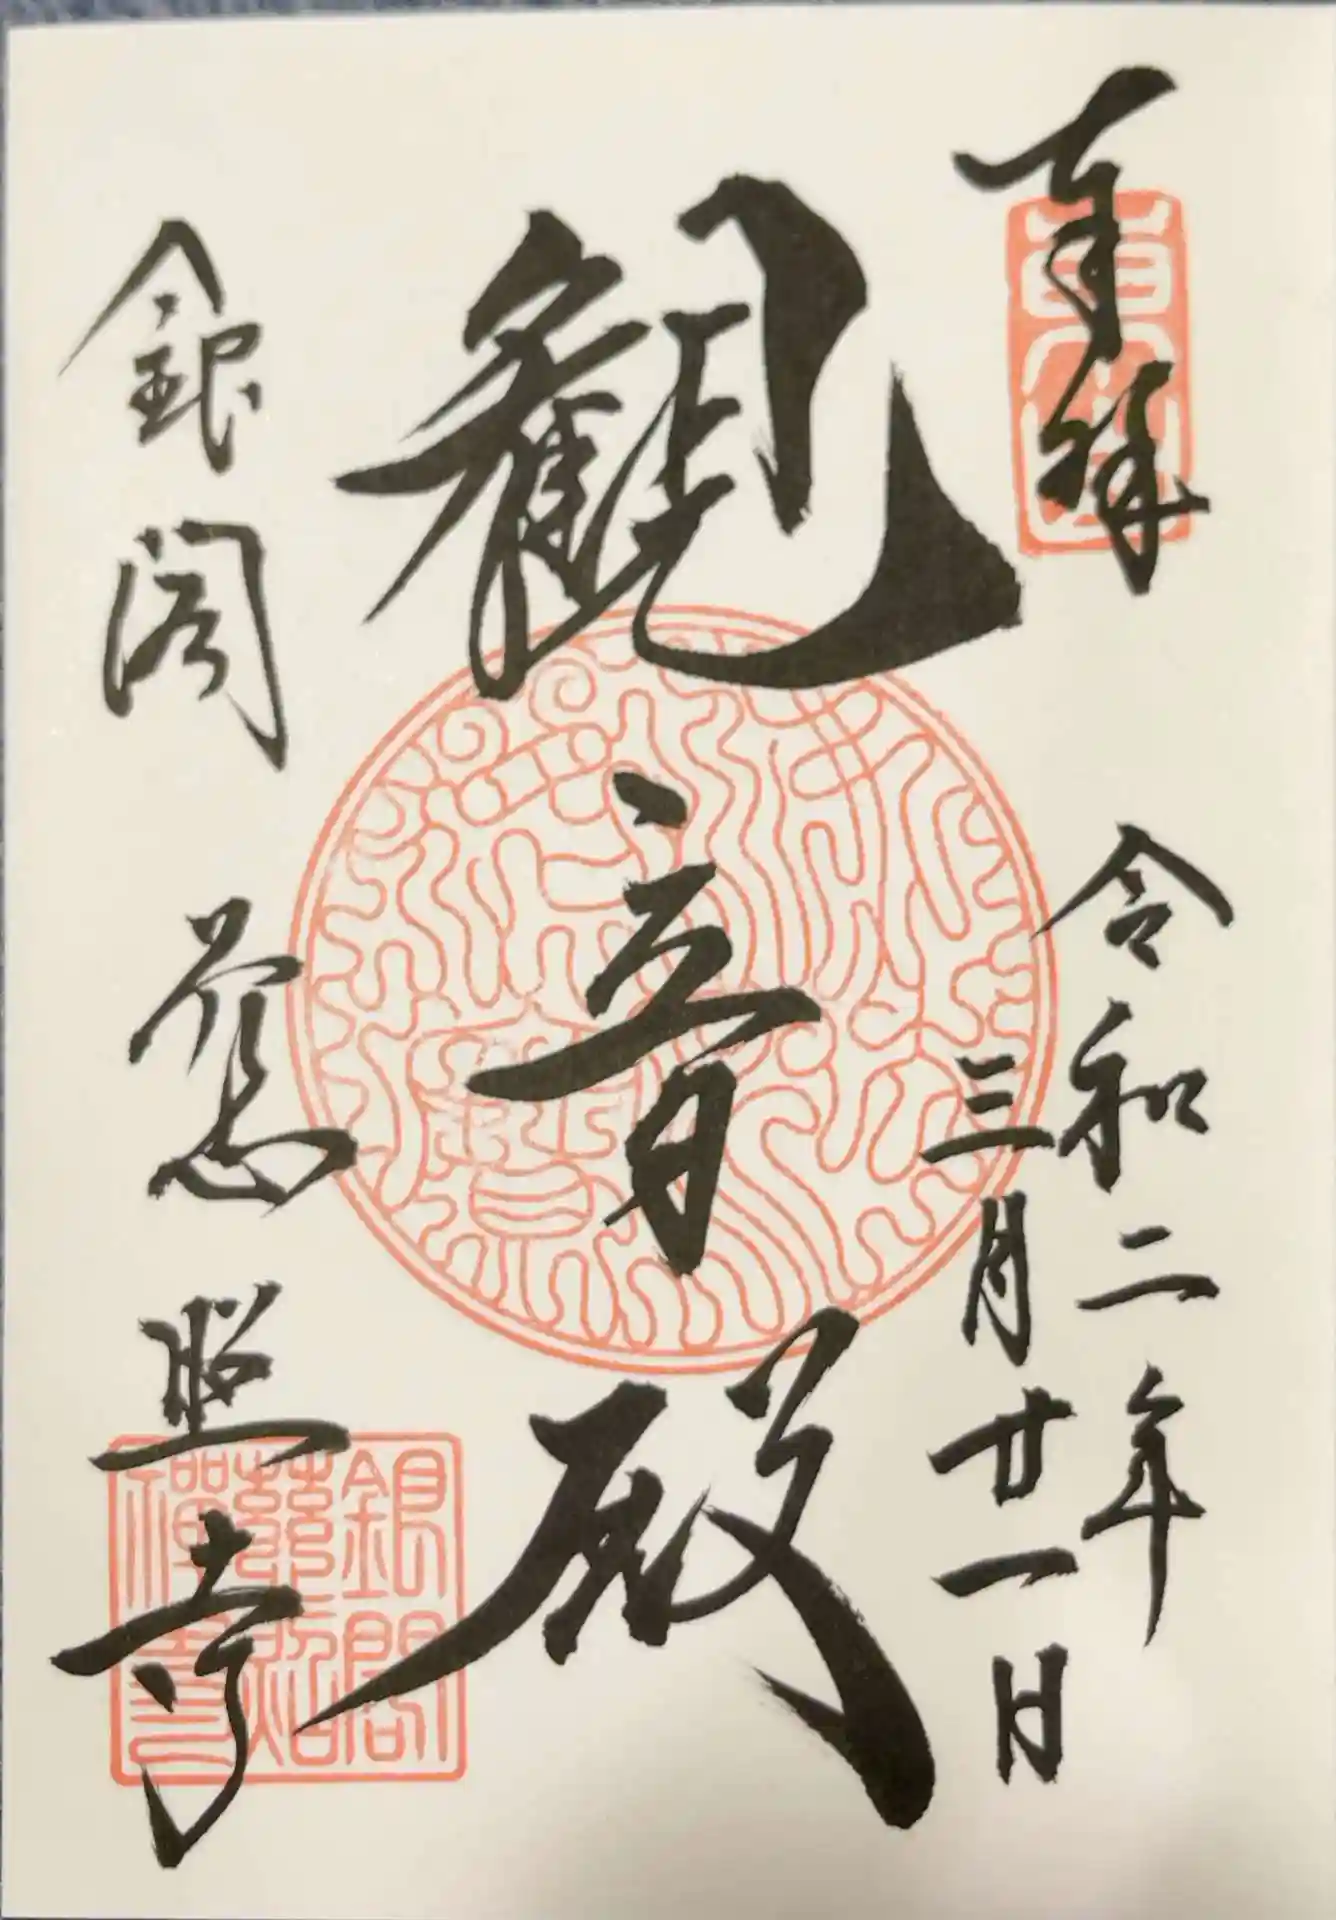 奉拝
令和二年
三月廿一日
観音殿
銀閣慈照寺
銀閣
慈照
禅寺